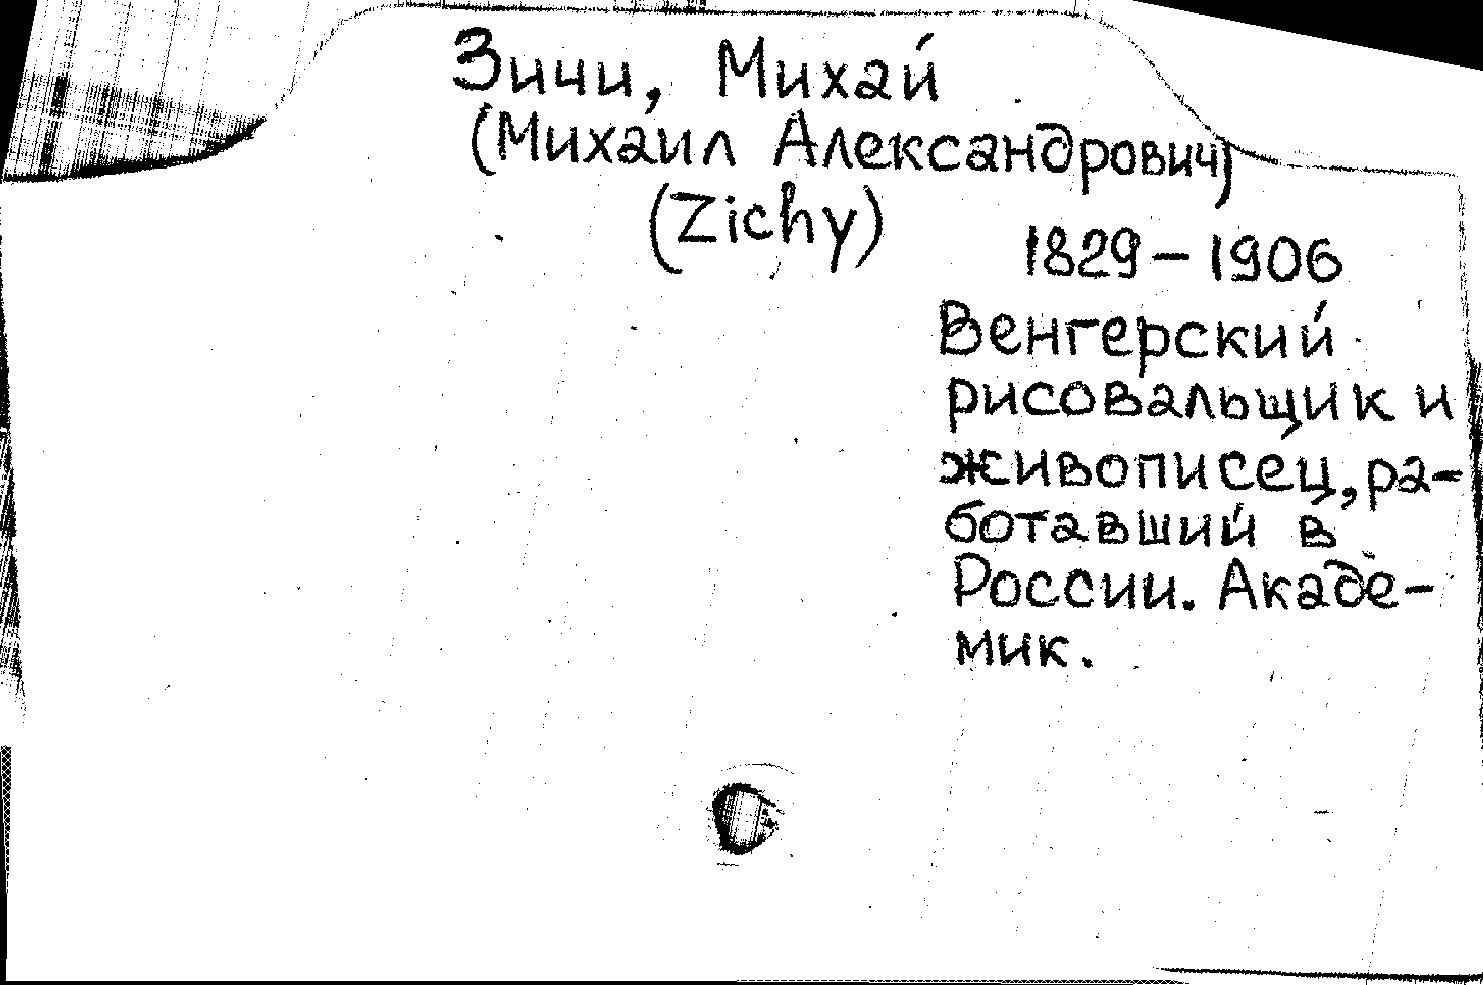 Зичи, Михай
(Михаил Александрович)
(Zichy)
1829 – 1906
Венгерский
рисовальщик и
живописец, ра-
ботавший в
России. Акаде-
мик.